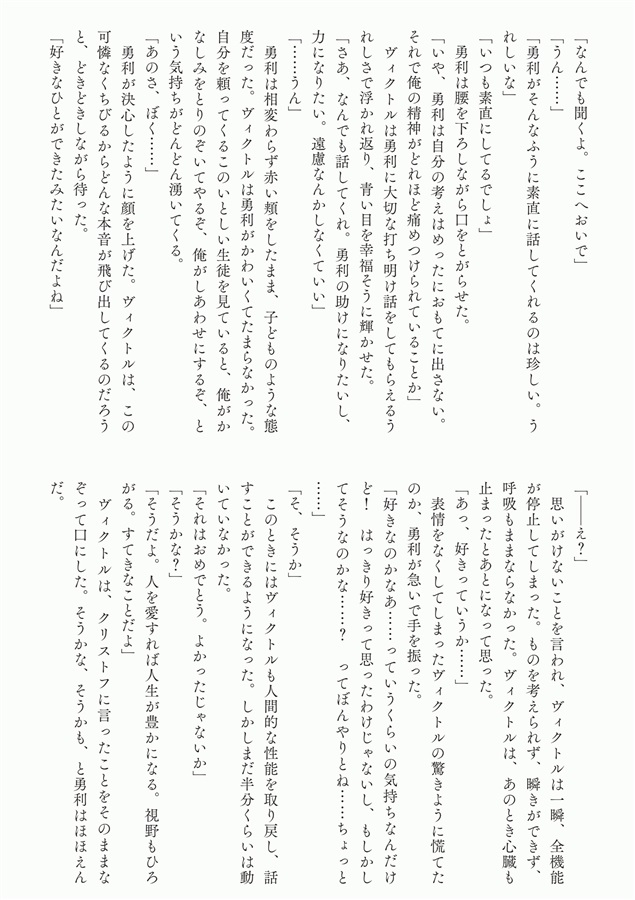 「なんでも聞くよ。ここへおいで」
「うん……」
「勇利がそんなふうに素直に話してくれるのは珍しい。う
れしいな」
「いつも素直にしてるでしょ」
勇利は腰を下ろしながら口をとがらせた。
「いや、勇利は自分の考えはめったにおもてに出さない。
それで俺の精神がどれほど痛めつけられていることか」
ヴィクトルは勇利に大切な打ち明け話をしてもらえるう
れしさで浮かれ返り、青い目を幸福そうに輝かせた。
「さあ、なんでも話してくれ。勇利の助けになりたいし、
力になりたい。遠慮なんかしなくていい」
「……うん」
勇利は相変わらず赤い頬をしたまま、子どものような態
度だった。ヴィクトルは勇利がかわいくてたまらなかった。
自分を頼ってくるこのいとしい生徒を見ていると、俺がか
なしみをとりのぞいてやるぞ、俺がしあわせにするぞ、と
いう気持ちがどんどん湧いてくる。
「あのさ、ぼく……」
勇利が決心したように顔を上げた。ヴィクトルは、この
可憐なくちびるからどんな本音が飛び出してくるのだろう
と、どきどきしながら待った。
「好きなひとができたみたいなんだよね」
「――え？」
思いがけないことを言われ、ヴィクトルは一瞬、全機能
が停止してしまった。ものを考えられず、瞬きができず、
呼吸もままならなかった。ヴィクトルは、あのとき心臓も
止まったとあとになって思った。
「あっ、好きっていうか……」
表情をなくしてしまったヴィクトルの驚きように慌てた
のか、勇利が急いで手を振った。
「好きなのかなあ……っていうくらいの気持ちなんだけ
ど！　はっきり好きって思ったわけじゃないし、もしかし
てそうなのかな……？　ってぼんやりとね……ちょっと
……」
「そ、そうか」
このときにはヴィクトルも人間的な性能を取り戻し、話
すことができるようになった。しかしまだ半分くらいは動
いていなかった。
「それはおめでとう。よかったじゃないか」
「そうかな？」
「そうだよ。人を愛すれば人生が豊かになる。視野もひろ
がる。すてきなことだよ」
ヴィクトルは、クリストフに言ったことをそのままな
ぞって口にした。そうかな、そうかも、と勇利はほほえん
だ。